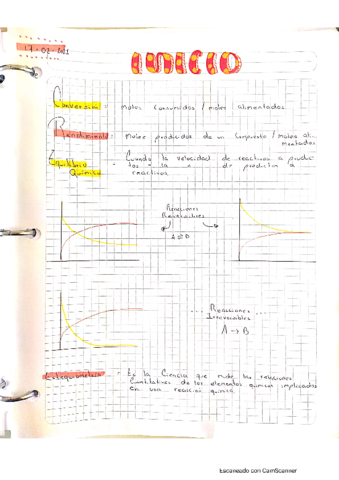 17-02-2021
INICIO
Conversión = moles consumidos / moles alimentados
Rendimiento = Moles producidos de un compuesto / moles ali-
mentados
Equilibrio = Cuando la velocidad de reactivos a produc
Químico tos = la " de productos a
reactivos
Reacciones
Reversibles
A ⇌ B
Reacciones
Irreversibles
A → B
Estequiometría = Es la Ciencia que mide las relaciones
Cuantitativas de los elementos químicos implicados
en una reacción química
Escaneado con CamScanner